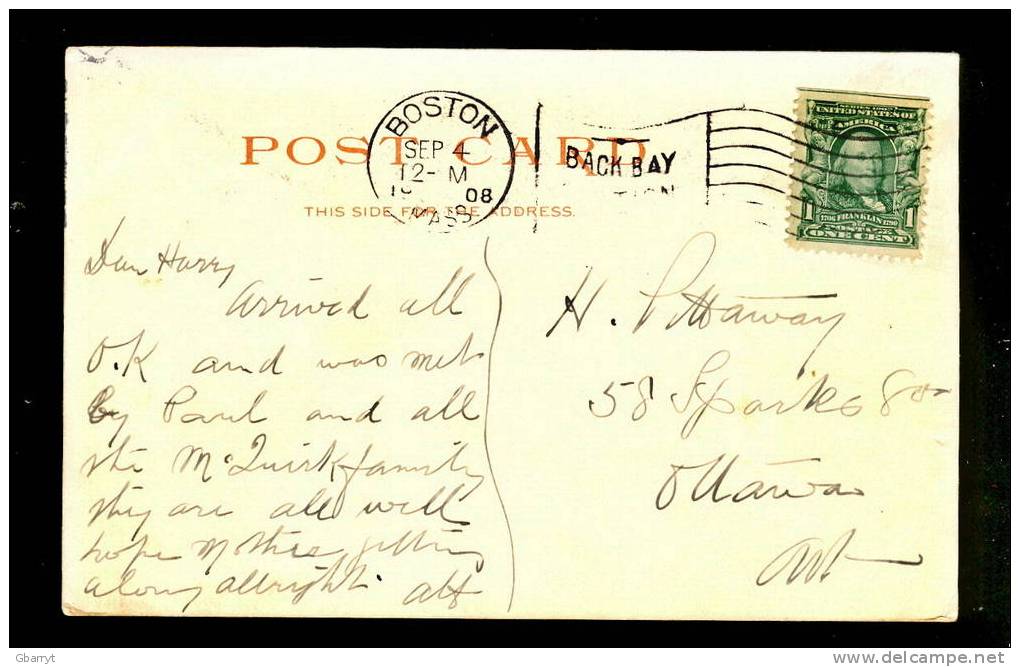 POST CARD
THIS SIDE FOR THE ADDRESS.
BOSTON
SEP 4
12 - M
19 08
MASS
BACK BAY
SERIES 1902
UNITED STATES OF
AMERICA
1 1
1706 FRANKLIN 1790
POSTAGE
ONE CENT
Dear Harry
Arrived all
O.K and was met
by Paul and all
the McQuirk family
they are all well
hope Mother getting
along allright. Alf
H. Pittaway
58 Sparks St
Ottawa
Ont
Gbarryt
www.delcampe.net